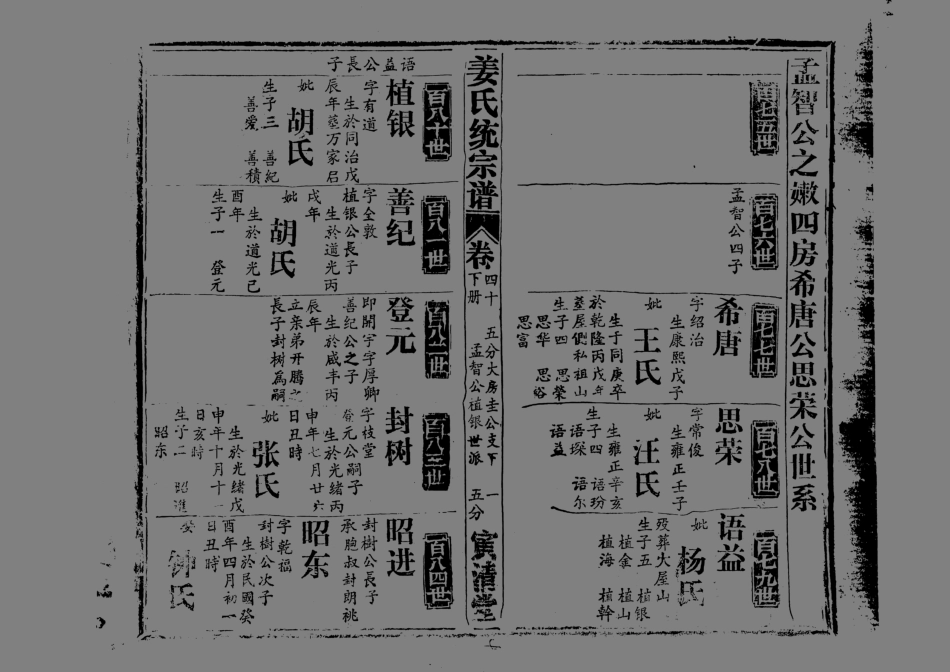 孟智公之嫩四房希唐公思荣公世系
百七五世
百七六世
孟智公四子
百七七世
希唐
字绍治
生康熙戊子
妣
王氏
生于同庚卒
於乾隆丙戌年
墓屋側私祖山
生子四 思榮
思华 思俗
思富
百七八世
思荣
字常俊
生雍正壬子
妣
汪氏
生雍正辛亥
生子四 语玢
语琛 语尔
语益
百七九世
语益
妣
杨氏
殁葬大屋山
生子五 植银
植金 植山
植海 植幹
姜氏统宗谱
卷
四十
下册
五分大房圭公支下
孟智公植银世派
一
五分
寅清堂
百八十世
语益公長子
植银
字有道
生於同治戊
辰年葬万家启
妣
胡氏
生子三 善纪
善爱 善積
百八一世
善纪
字全敦
植银公長子
生於道光丙
戌年
妣
胡氏
生於道光己
酉年
生子一 登元
百八二世
登元
即開宇字厚卿
善纪公之子
生於咸丰丙
辰年
立亲弟开腾之
長子封树為嗣
百八三世
封树
字枝堂
登元公嗣子
生於光緒丙
申年七月廿六
日丑時
妣
张氏
生於光緒戊
申年十月十一
日亥時
生子二 昭進
昭东
百八四世
昭进
封樹公長子
承胞叔封朗祧
昭东
字乾福
封樹公次子
生於民國癸
酉年四月初一
日丑時
钟氏